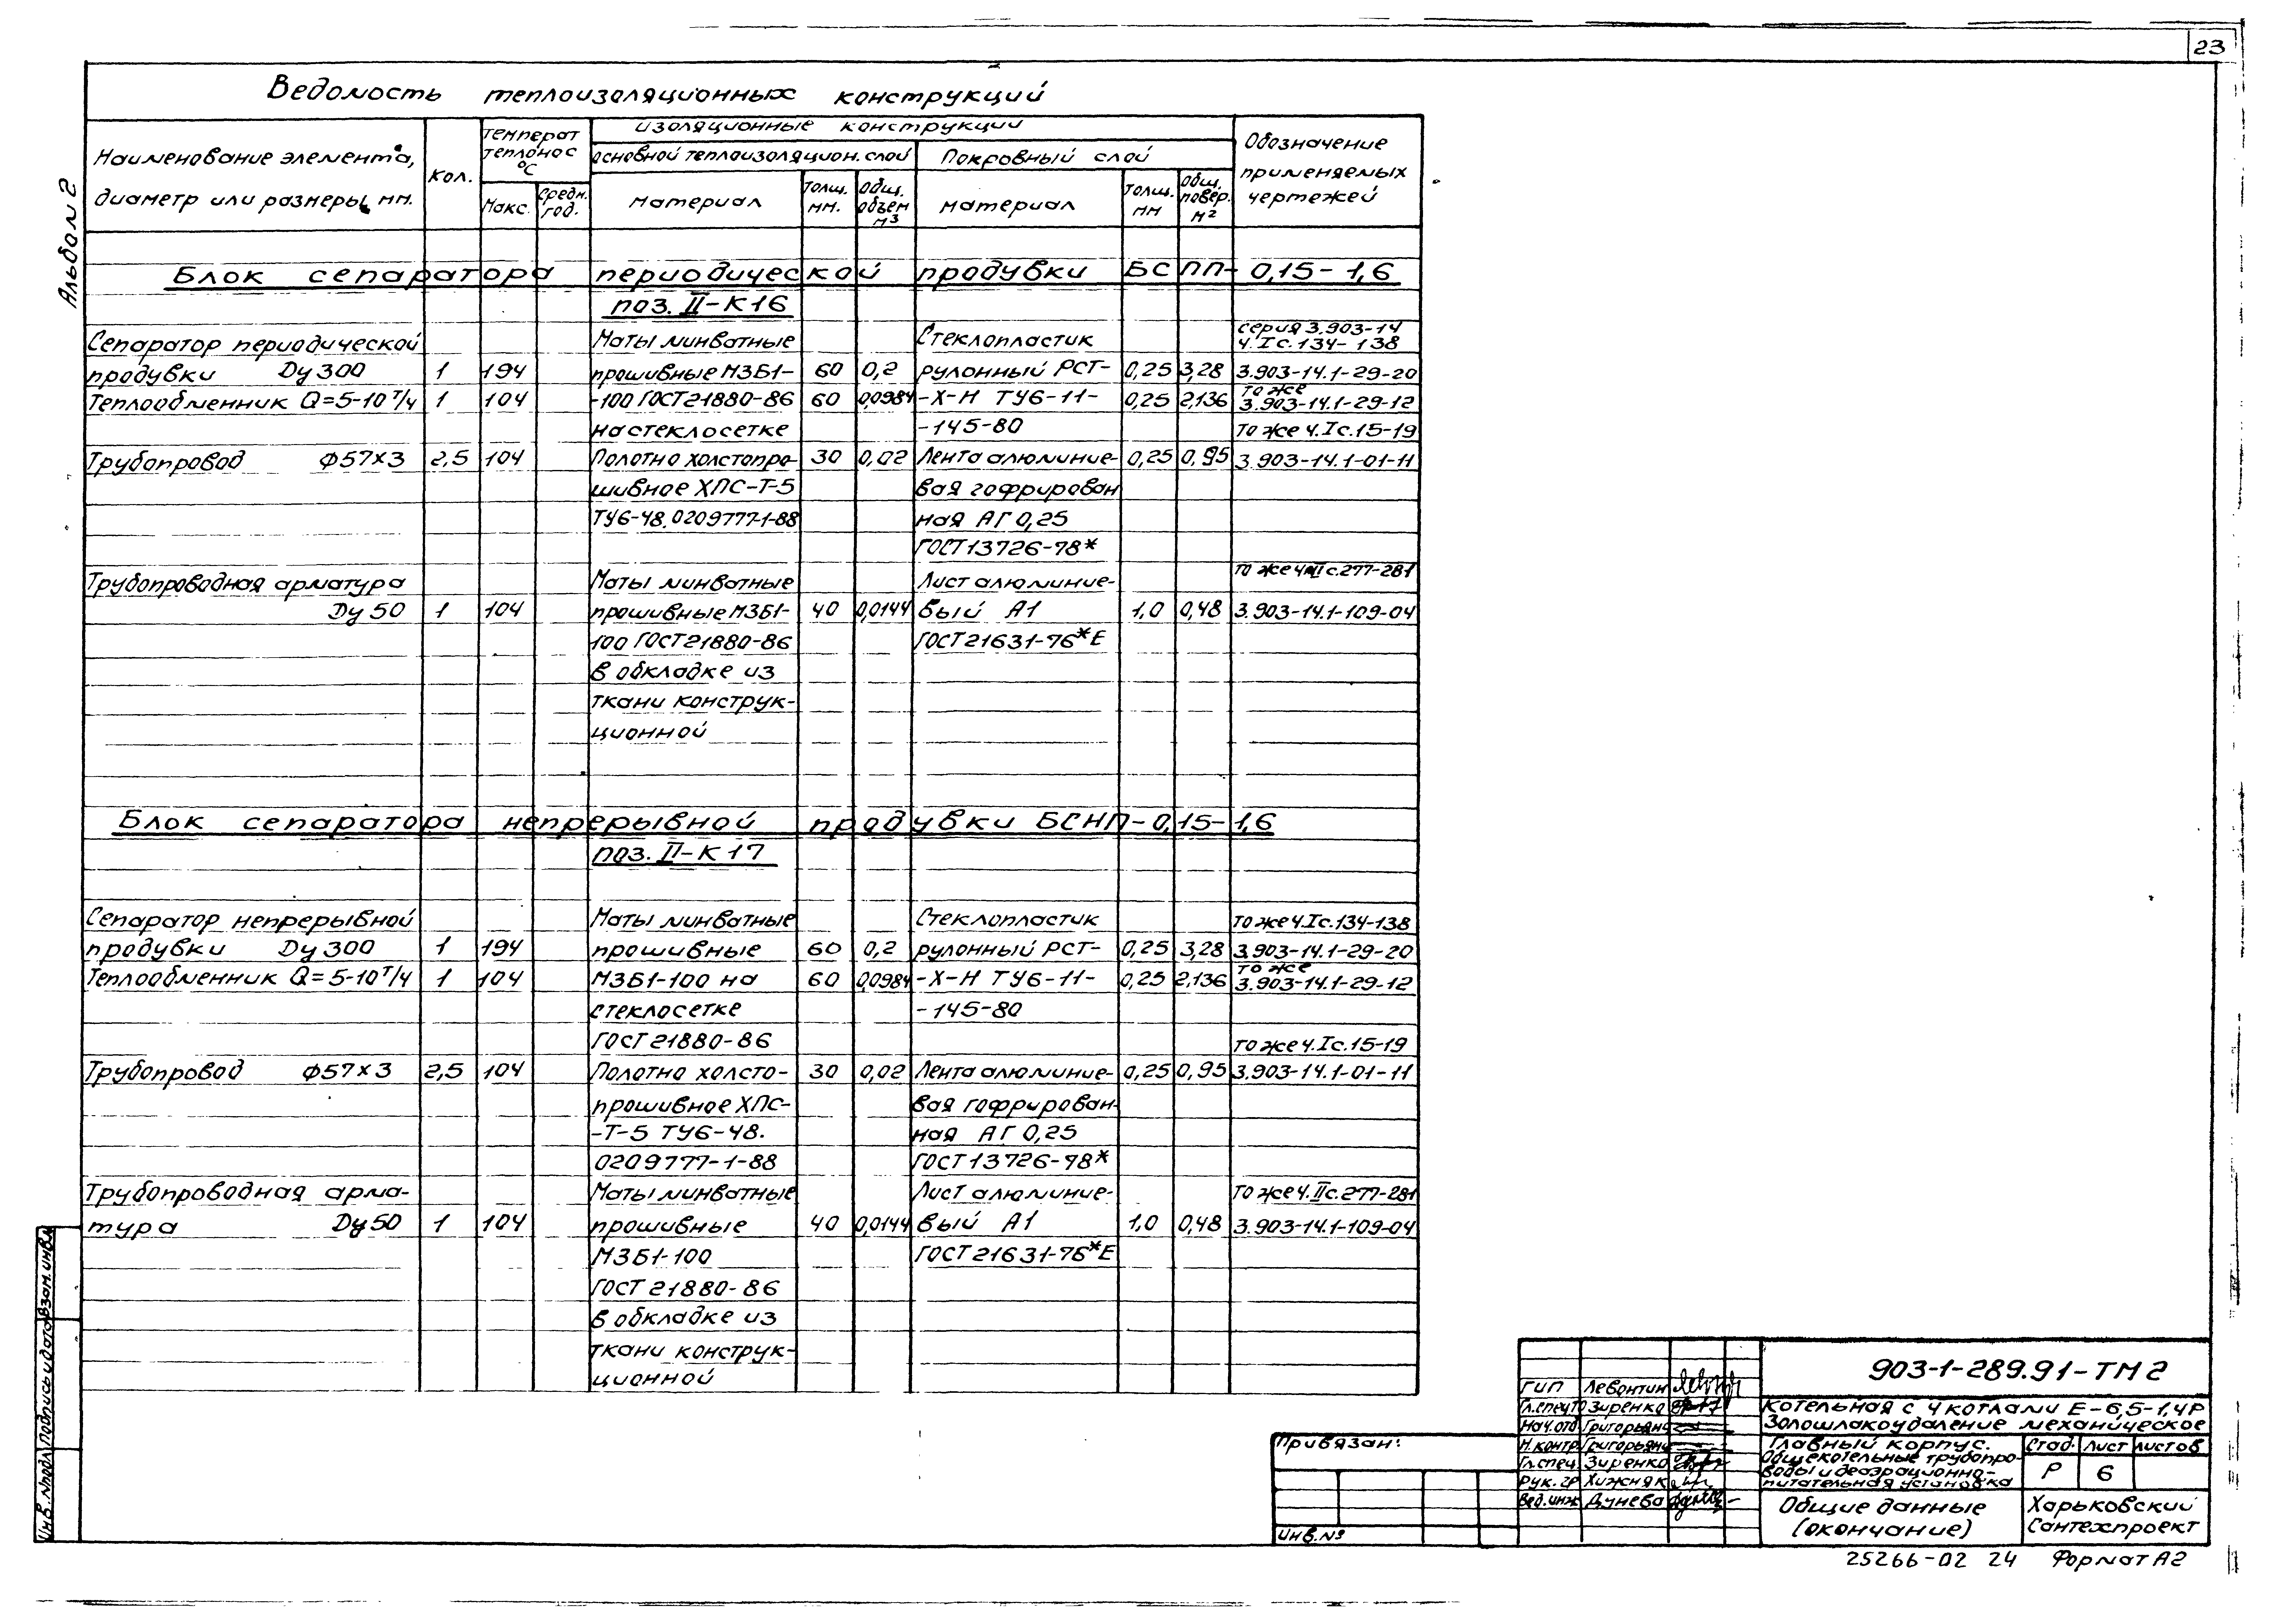 23
Альбом 2
Ведомость теплоизоляционных конструкций
Наименование элемента, диаметр или размеры, мм.
Кол.
Температ теплонос °С
Макс.
Средн. год.
изоляционные конструкции
основной теплоизоляцион. слой
Покровный слой
материал
Толщ. мм.
Общ. объем м³
материал
Толщ. мм
Общ. повер. м²
Обозначение применяемых чертежей
Блок сепаратора периодической продувки БСПП-0,15-1,6
поз. II-К16
Сепаратор периодической Маты минватные Стеклопластик серия 3.903-14 ч.Iс.134-138
продувки Ду300 1 194 прошивные МЗБ1- 60 0,2 рулонный РСТ- 0,25 3,28 3.903-14.1-29-20
Теплообменник Q=5-10 т/ч 1 104 -100 ГОСТ21880-86 60 0,0984 -Х-Н ТУ6-11- 0,25 2,136 то же 3.903-14.1-29-12
на стеклосетке -145-80 то же ч.Iс.15-19
Трубопровод Ф57×3 2,5 104 Полотно холстопро- 30 0,02 Лента алюминие- 0,25 0,95 3.903-14.1-01-11
шивное ХПС-Т-5 вая гофрирован
ТУ6-48.0209777-1-88 ная АГ 0,25
ГОСТ13726-78*
Трубопроводная арматура Маты минватные Лист алюминие- то же ч.IIс.277-281
Ду50 1 104 прошивные МЗБ1- 40 0,0144 вый А1 1,0 0,48 3.903-14.1-109-04
100 ГОСТ21880-86 ГОСТ21631-76*Е
в обкладке из
ткани конструк-
ционной
Блок сепаратора непрерывной продувки БСНП-0,15-1,6
поз. II-К17
Сепаратор непрерывной Маты минватные Стеклопластик то же ч.Iс.134-138
продувки Ду300 1 194 прошивные 60 0,2 рулонный РСТ- 0,25 3,28 3.903-14.1-29-20
Теплообменник Q=5-10 т/ч 1 104 МЗБ1-100 на 60 0,0984 -Х-Н ТУ6-11- 0,25 2,136 то же 3.903-14.1-29-12
стеклосетке -145-80
ГОСТ21880-86 то же ч.Iс.15-19
Трубопровод Ф57×3 2,5 104 Полотно холсто- 30 0,02 Лента алюминие- 0,25 0,95 3.903-14.1-01-11
прошивное ХПС- вая гофрирован-
-Т-5 ТУ6-48. ная АГ 0,25
0209777-1-88 ГОСТ13726-78*
Трубопроводная арма- Маты минватные Лист алюминие- то же ч.IIс.277-281
тура Ду50 1 104 прошивные 40 0,0144 вый А1 1,0 0,48 3.903-14.1-109-04
МЗБ1-100 ГОСТ21631-76*Е
ГОСТ 21880-86
в обкладке из
ткани конструк-
ционной
Инв.№подл Подпись и дата Взам.инв.№
Привязан:
Инв.№
ГИП Левонтин
Гл.спецТО Зиренко
Нач.отд Григорьянц
Н.контр. Григорьянц
Гл.спец. Зиренко
Рук.гр Хижняк
Вед.инж Дунева
903-1-289.91-ТМ2
Котельная с 4 котлами Е-6,5-1,4Р
Золошлакоудаление механическое
Главный корпус.
Общекотельные трубопро-
воды и деаэрационно-
питательная установка
Стад. Лист Листов
Р 6
Общие данные
(окончание)
Харьковский
Сантехпроект
25266-02 24 Формат А2